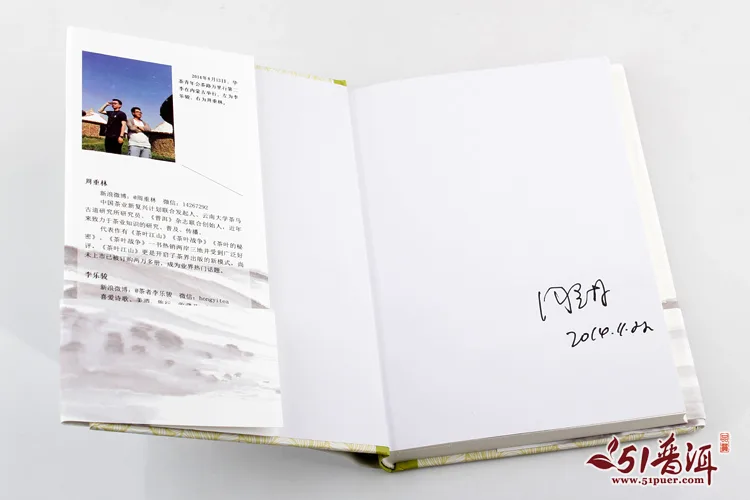 2014年8月13日，华
茶青年会茶路万里行第二
季在内蒙古举行，左为李
乐骏，右为周重林。
周重林
新浪微博：@周重林 微信：14267292
中国茶业新复兴计划联合发起人，云南大学茶马
古道研究所研究员，《普洱》杂志联合创始人，近年
来致力于茶业知识的研究、普及、传播。
代表作有《茶叶江山》《茶叶战争》《茶叶的秘
密》，《茶叶战争》一书热销两岸三地并受到广泛好
评，《茶叶江山》更是开启了茶界出版的新模式，尚
未上市已被订购两万多册，成为业界热门话题。
李乐骏
新浪微博：@茶者李乐骏 微信：
喜爱诗歌、
2014.11.22
51普洱
www.51puer.com